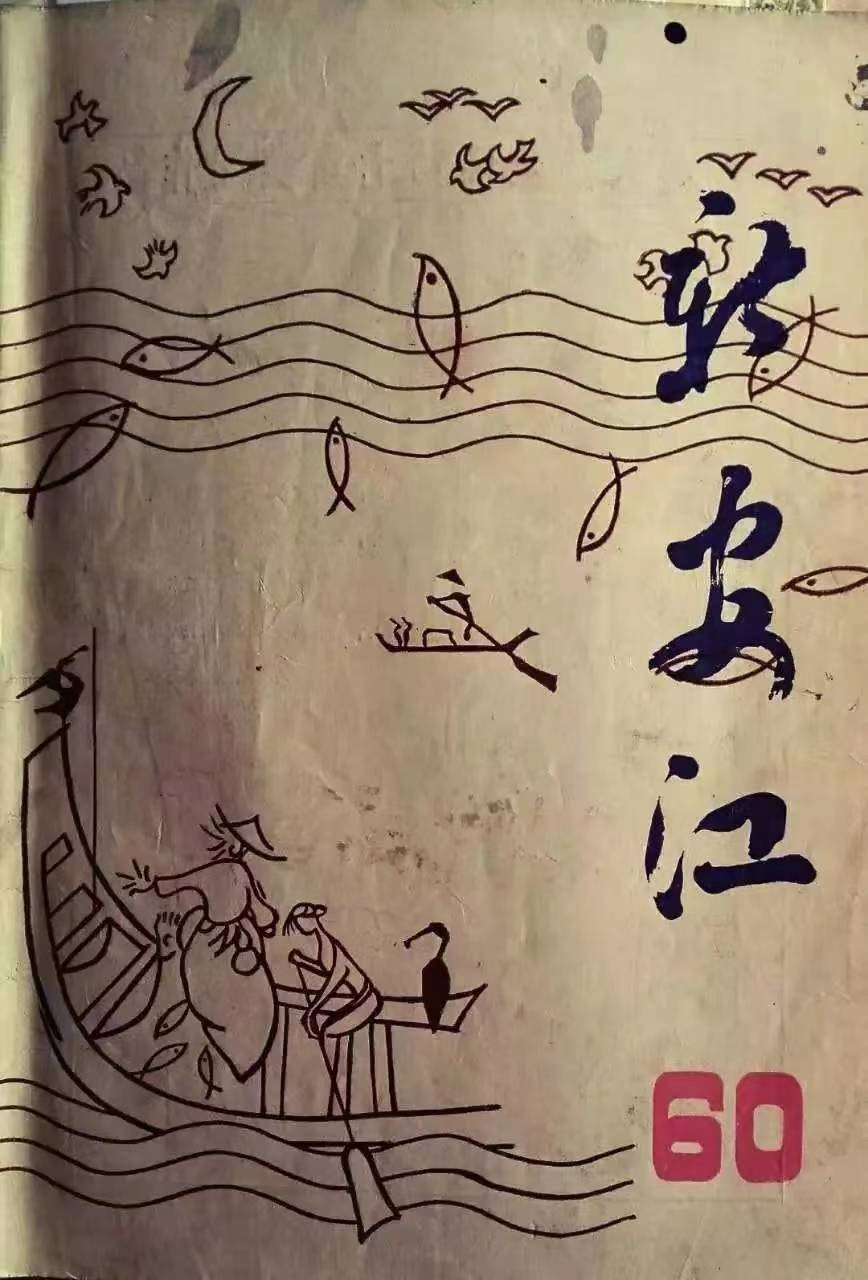 新安江
60